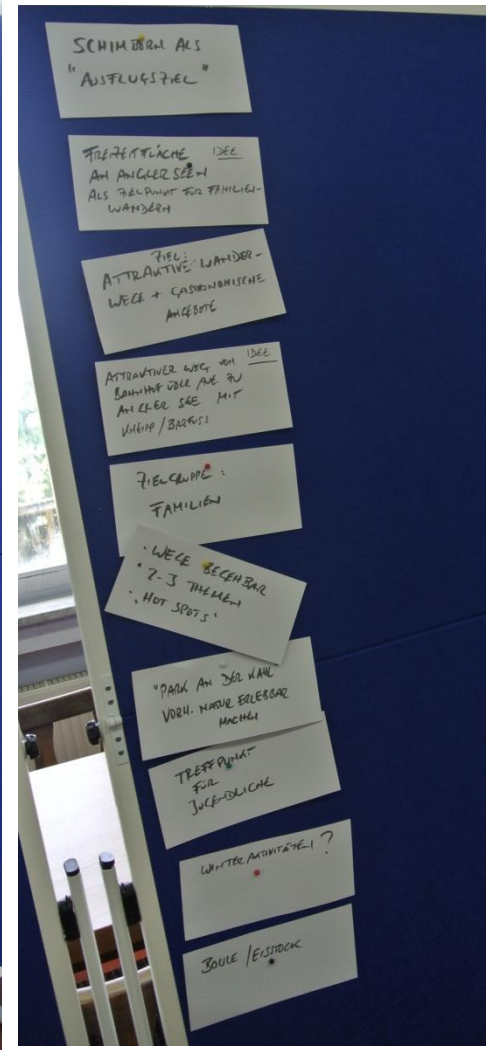 SCHIMBORN ALS
"AUSFLUGSZIEL"
FREIZEITFLÄCHE IDEE
AN ANGLERSEEN
ALS ZIELPUNKT FÜR FAMILIEN-
WANDERN
ZIEL:
ATTRAKTIVE WANDER-
WEGE + GASTRONOMISCHE
ANGEBOTE
ATTRAKTIVER WEG VOM IDEE
BAHNHOF ÜBER AUE ZU
ANGLER SEE MIT
KNEIPP / BARFUSS
ZIELGRUPPE:
FAMILIEN
• WEGE BEGEHBAR
• 2-3 THEMEN
• "HOT SPOTS"
"PARK AN DER KAHL
VORH. NATUR ERLEBBAR
MACHEN
TREFFPUNKT
FÜR
JUGENDLICHE
WINTERAKTIVITÄTEN?
BOULE / EISSTOCK